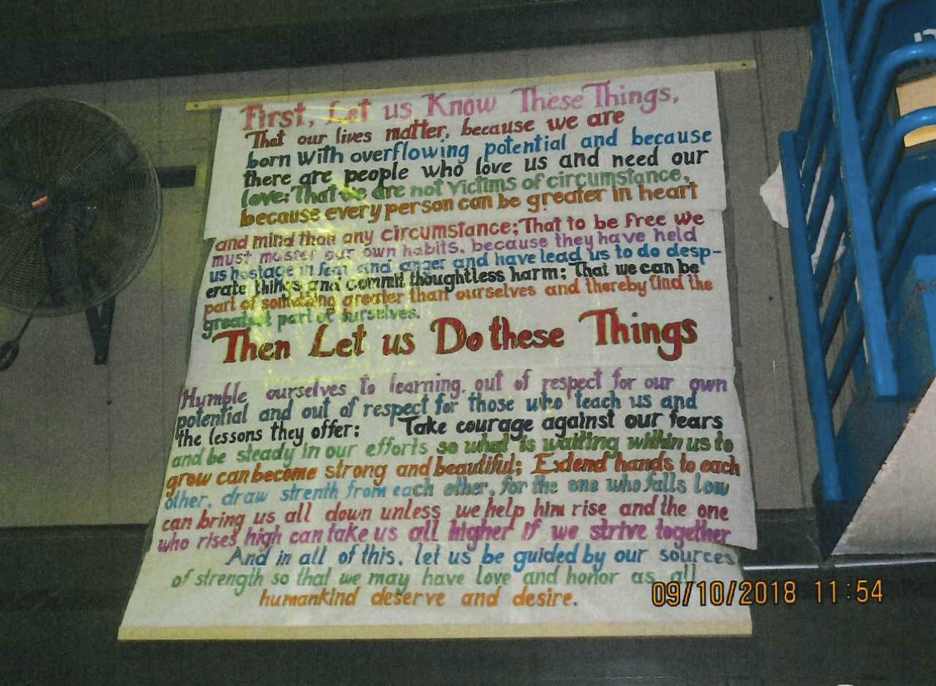 First, Let us Know These Things,
That our lives matter, because we are
born with overflowing potential and because
there are people who love us and need our
love; That we are not victims of circumstance,
because every person can be greater in heart
and mind than any circumstance; That to be free we
must master our own habits, because they have held
us hostage in fear and anger and have lead us to do desp-
erate things and commit thoughtless harm; That we can be
part of something greater than ourselves and thereby find the
greatest part of ourselves.
Then Let us Do these Things
Humble ourselves to learning, out of respect for our own
potential and out of respect for those who teach us and
the lessons they offer; Take courage against our fears
and be steady in our efforts so what is waiting within us to
grow can become strong and beautiful; Extend hands to each
other, draw strenth from each other, for the one who falls low
can bring us all down unless we help him rise and the one
who rises high can take us all higher if we strive together
And in all of this, let us be guided by our sources
of strength so that we may have love and honor as all
humankind deserve and desire.
09/10/2018 11:54